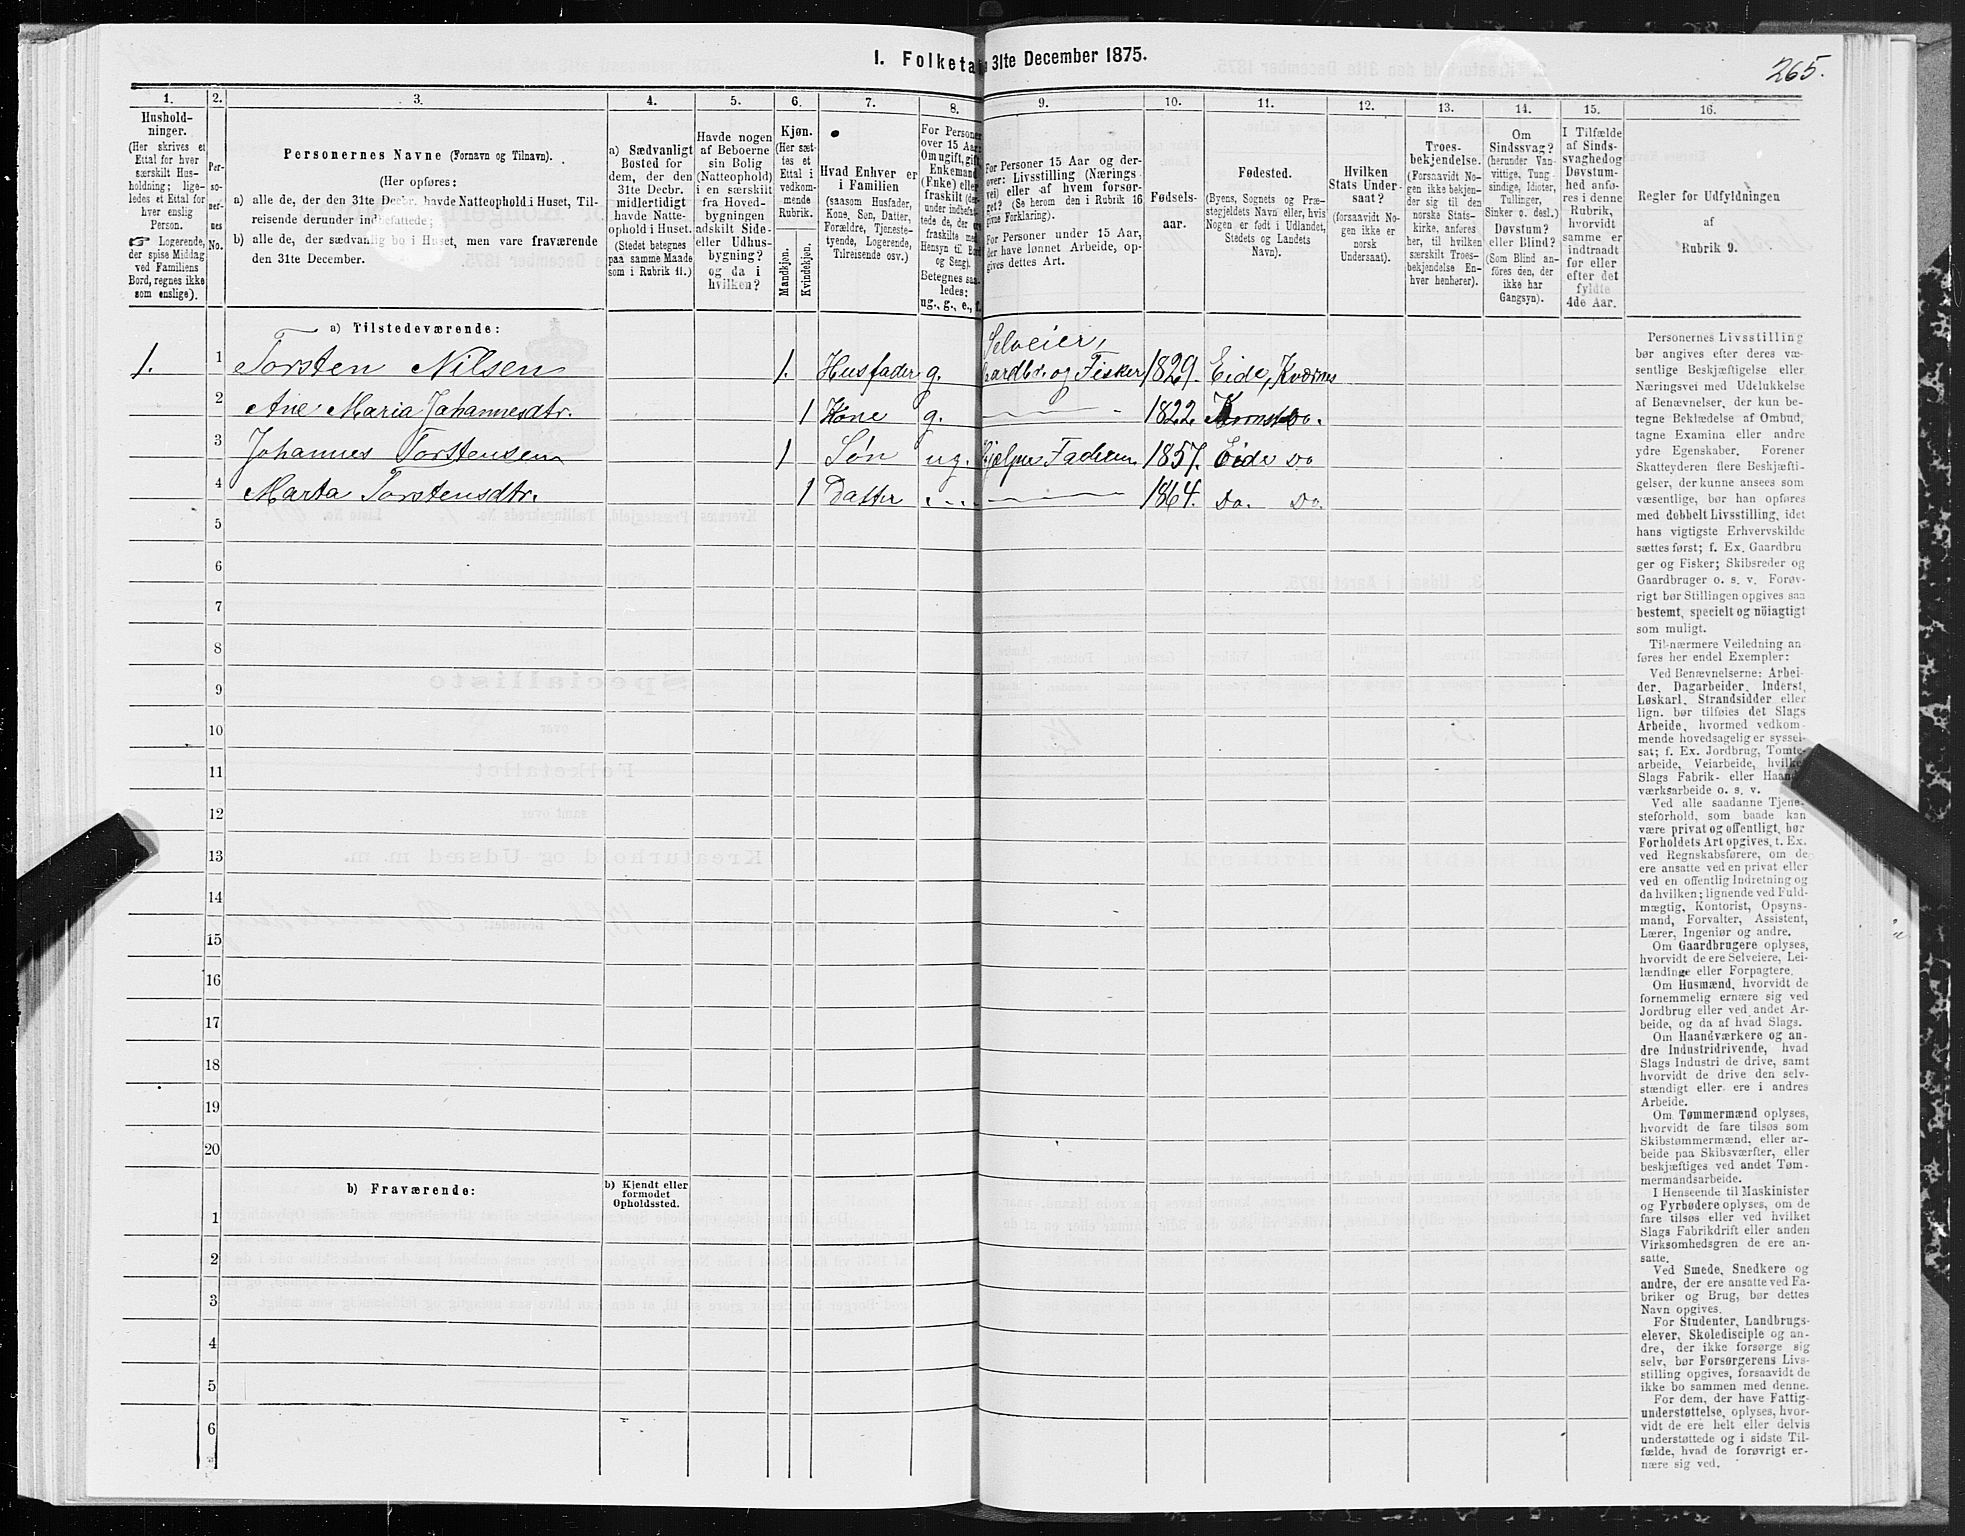 I. Folketal 31te December 1875.
265.
1. 2. 3. 4. 5. 6. 7. 8. 9. 10. 11. 12. 13. 14. 15. 16.
Hushold-
ninger.
(Her skrives et
Ettal for hver
særskilt Hus-
holdning; lige-
ledes et Ettal for
hver enslig
Person.
☞ Logerende,
der spise Middag
ved Familiens
Bord, regnes ikke
som enslige).
Per-
so-
ner-
nes
No.
Personernes Navne (Fornavn og Tilnavn).
(Her opføres:
a) alle de, der den 31te Decbr. havde Natteophold i Huset, Til-
reisende derunder indbefattede;
b) alle de, der sædvanlig bo i Huset, men vare fraværende
den 31te December.
a) Sædvanligt
Bosted for
dem, der den
31te Decbr.
midlertidigt
havde Natte-
ophold i Huset.
(Stedet betegnes
paa samme Maade
som i Rubrik 11.)
Havde nogen
af Beboerne
sin Bolig
(Natteophold)
i en særskilt
fra Hoved-
bygningen
adskilt Side-
eller Udhus-
bygning?
og da i
hvilken?
Kjøn.
(Her sæt-
tes et
Ettal i
vedkom-
mende
Rubrik.
Mandkjøn.
Kvindekjøn.
Hvad Enhver er
i Familien
(saasom Husfader,
Kone, Søn, Datter,
Forældre, Tjeneste-
tyende, Logerende,
Tilreisende osv.)
For Personer
over 15 Aar:
Om ugift, gift,
Enkemand
(Enke) eller
fraskilt (der-
under indbefat-
tede de, der ere
fraskilte med
Hensyn til Bord
og Seng).
Betegnes saa-
ledes:
ug., g., e., f.
For Personer 15 Aar og der-
over: Livsstilling (Nærings-
vei) eller af hvem forsør-
get? (Se herom den i Rubrik 16
givne Forklaring).
For Personer under 15 Aar,
der have lønnet Arbeide, op-
gives dettes Art.
Fødsels-
aar.
Fødested.
(Byens, Sognets og Præ-
stegjeldets Navn eller, hvis
Nogen er født i Udlandet,
Stedets og Landets
Navn).
Hvilken
Stats Under-
saat?
(forsaavidt No-
gen ikke er
norsk
Undersaat).
Troes-
bekjendelse.
(Forsaavidt No-
gen ikke bekjen-
der sig til den
norske Stats-
kirke, anføres
her, til hvilken
særskilt Troes-
bekjendelse En-
hver henhører).
Om
Sindssvag?
(herunder Van-
vittige, Tung
sindige, Idioter,
Tullinger,
Sinker o. desl.)
Døvstum?
eller Blind?
(Som Blind an-
føres den, der
ikke har
Gangsyn).
I Tilfælde
af Sinds-
svaghed og
Døvstum-
hed anfø-
res i denne
Rubrik,
hvorvidt
samme er
indtraadt
før eller
efter det
fyldte
4de Aar.
Regler for Udfyldningen
af
Rubrik 9.
a) Tilstedeværende:
Selveier,
1. 1 Torsten Nilsen 1. Husfader g. Gaardbr. og Fisker 1829. Eide, Kværnes
2 Ane Maria Johannesdtr. 1 Kone g. 1822. Do.
3 Johannes Torstensen 1 Søn ug. Hjælper Faderen 1857. Eide Do
4 Marta Torstensdtr. 1 Datter 1864. Do. Do.
5
6
7
8
9
10
11
12
13
14
15
16
17
18
19
20
b) Fraværende:
b) Kjendt eller
formodet
Opholdssted.
1
2
3
4
5
6
Personernes Livsstilling
bør angives efter deres væ-
sentlige Beskjæftigelse eller
Næringsvei med Udelukkelse
af Benævnelser, der kun be-
tegne Beklædelse af Ombud,
tagne Examina eller andre
ydre Egenskaber. Forener
Skatteyderen flere Beskjæfti-
gelser, der kunne ansees som
væsentlige, bør han opføres
med dobbelt Livsstilling, idet
hans vigtigste Erhvervskilde
sættes først; f. Ex. Gaardbru
ger og Fisker; Skibsreder og
Gaardbruger o. s. v. Forøv-
rigt bør Stillingen opgives saa
bestemt, specielt og nöiagtigt
som muligt.
Til nærmere Veiledning an
føres her endel Exempler:
Ved Benævnelserne: Arbei-
der, Dagarbeider, Inderst,
Løskarl, Strandsidder eller
lign. bør tilføies det Slags
Arbeide, hvormed vedkom-
mende hovedsagelig er syssel-
sat; f. Ex. Jordbrug, Tomte-
arbeide, Veiarbeide, hvilket
Slags Fabrik- eller Haand-
værksarbeide o. s. v.
Ved alle saadanne Tjene-
steforhold, som baade kan
være privat og offentligt, bør
Forholdets Art opgives, t. Ex.
ved Regnskabsførere, om de
ere ansatte ved en privat eller
ved en offentlig Indretning og
da hvilken; lignende ved Fuld-
mægtig, Kontorist, Opsyns-
mand, Forvalter, Assistent,
Lærer, Ingeniør og andre.
Om Gaardbrugere oplyses,
hvorvidt de ere Selveiere, Lei-
lændinge eller Forpagtere.
Om Husmænd, hvorvidt de
fornemmelig ernære sig ved
Jordbrug eller ved andet Ar-
beide, og da af hvad Slags.
Om Haandværkere og an-
dre Industridrivende, hvad
Slags Industri de drive, samt
hvorvidt de drive den selv-
stændigt eller ere i andres
Arbeide.
Om Tømmermænd oplyses,
hvorvidt de fare tilsøs som
Skibstømmermænd, eller ar-
beide paa Skibsværfter, eller
beskjæftiges ved andet Tøm-
mermandsarbeide.
I Henseende til Maskinister
og Fyrbødere oplyses, om de
fare tilsøs eller ved hvilket
Slags Fabrikdrift eller anden
Virksomhedsgren de ere an-
satte.
Ved Smede, Snedkere og
andre, der ere ansatte ved Fa-
briker og Brug, bør dettes
Navn opgives.
For Studenter, Landbrugs-
elever, Skoledisciple og an-
dre, der ikke forsørge sig
selv, bør Forsørgerens Livs-
stilling opgives, forsaavidt de
ikke bo sammen med denne.
For dem, der have Fattig-
understøttelse, oplyses, hvor-
vidt de ere helt eller delvis
understøttede og i sidste Til-
fælde, hvad de forøvrigt er-
nære sig ved.